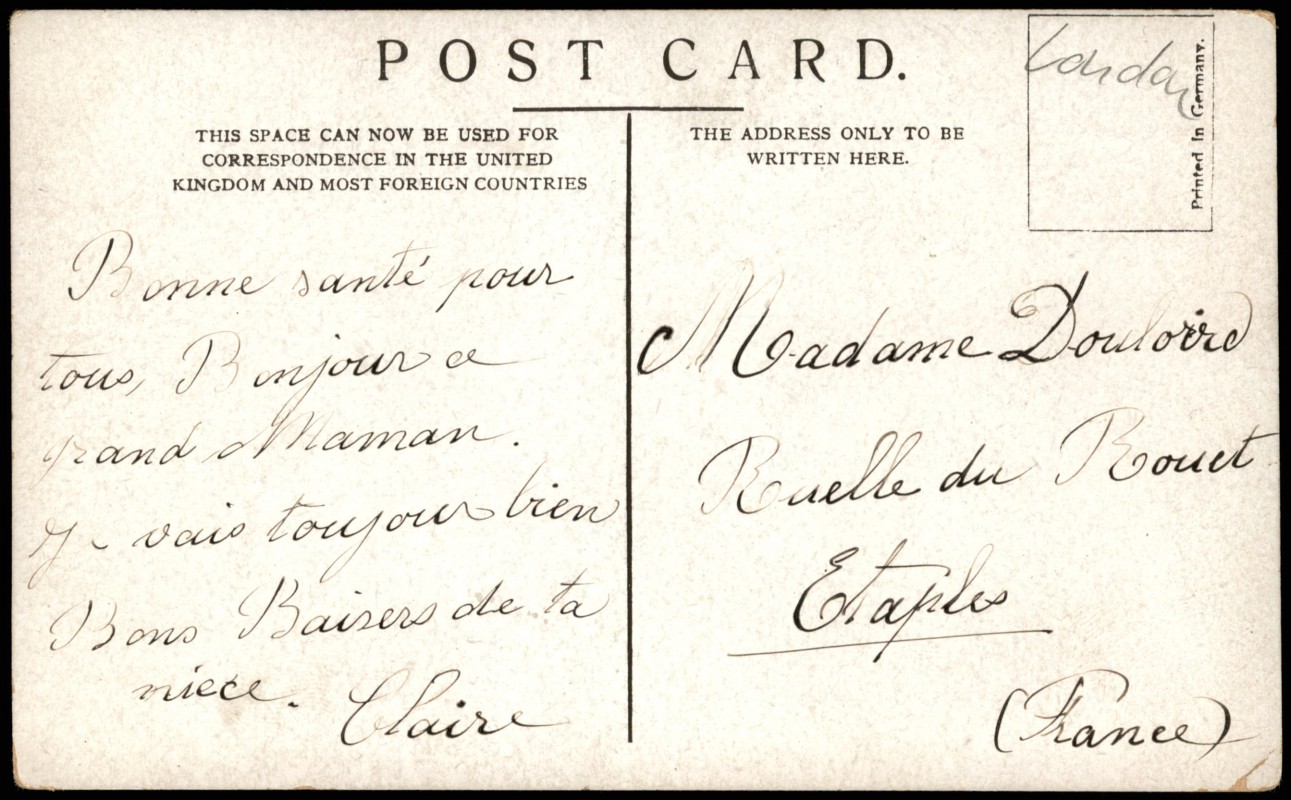 POST CARD.
THIS SPACE CAN NOW BE USED FOR
CORRESPONDENCE IN THE UNITED
KINGDOM AND MOST FOREIGN COUNTRIES
THE ADDRESS ONLY TO BE
WRITTEN HERE.
London
Printed In Germany.
Bonne santé pour
tous, Bonjour a
grand Maman.
Je vais toujour bien
Bons Baisers de ta
niece.
Claire
Madame
Ruelle du Rouet
Etaples
(France)